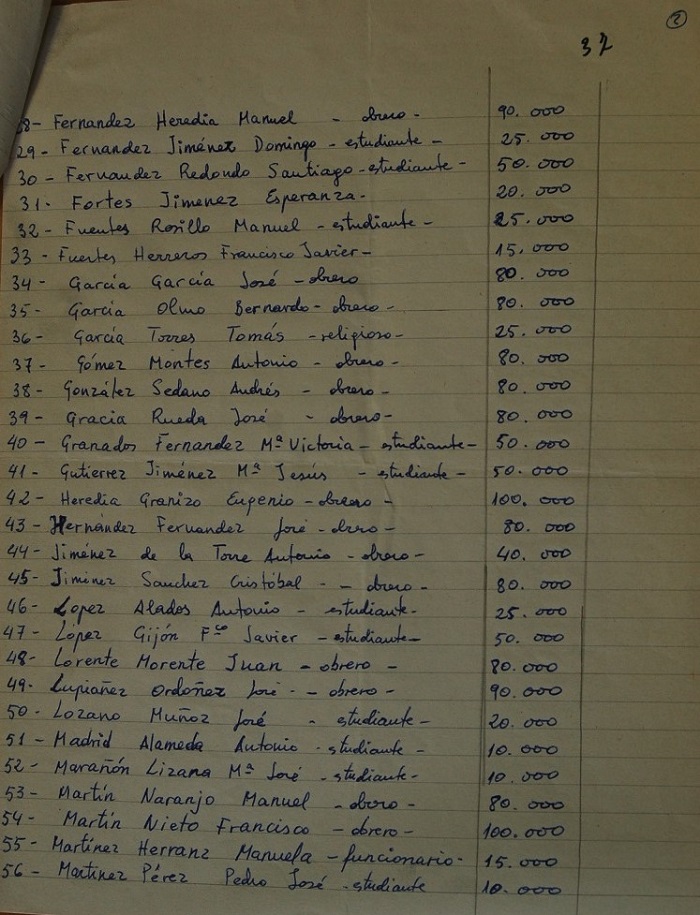 2
37
28- Fernandez Heredia Manuel - obrero- 90.000
29- Fernandez Jiménez Domingo - estudiante - 25.000
30 - Fernandez Redondo Santiago-estudiante - 50.000
31- Fortes Jimenez Esperanza- 20.000
32- Fuentes Rosillo Manuel - estudiante - 25.000
33 - Fuentes Herreros Francisco Javier - 15.000
34 - García García José - obrero 80.000
35 - García Olmo Bernardo - obrero - 80.000
36 - García Torres Tomás - religioso - 25.000
37 - Gómez Montes Antonio - obrero - 80.000
38 - González Sedano Andrés - obrero - 80.000
39 - Gracia Rueda José - obrero - 80.000
40 - Granados Fernandez Mª Victoria - estudiante - 50.000
41 - Gutierrez Jiménez Mª Jesús - estudiante - 50.000
42 - Heredia Granizo Eugenio - obrero - 100.000
43 - Hernández Fernandez José - obrero - 80.000
44 - Jiménez de la Torre Antonio - obrero - 40.000
45 - Jiminez Sanchez Cristóbal - - obrero - 80.000
46 - Lopez Alados Antonio - estudiante - 25.000
47 - López Gijón Fco Javier - estudiante - 50.000
48 - Lorente Morente Juan - obrero - 80.000
49 - Lupiañez Ordoñez José - - obrero - 90.000
50 - Lozano Muñoz José - estudiante - 20.000
51 - Madrid Alameda Antonio - estudiante - 10.000
52 - Marañón Lizana Mª José - estudiante - 10.000
53 - Martín Naranjo Manuel - obrero - 80.000
54 - Martín Nieto Francisco - obrero - 100.000
55 - Martínez Herranz Manuela - funcionario - 15.000
56 - Martínez Pérez Pedro José - estudiante 10.000